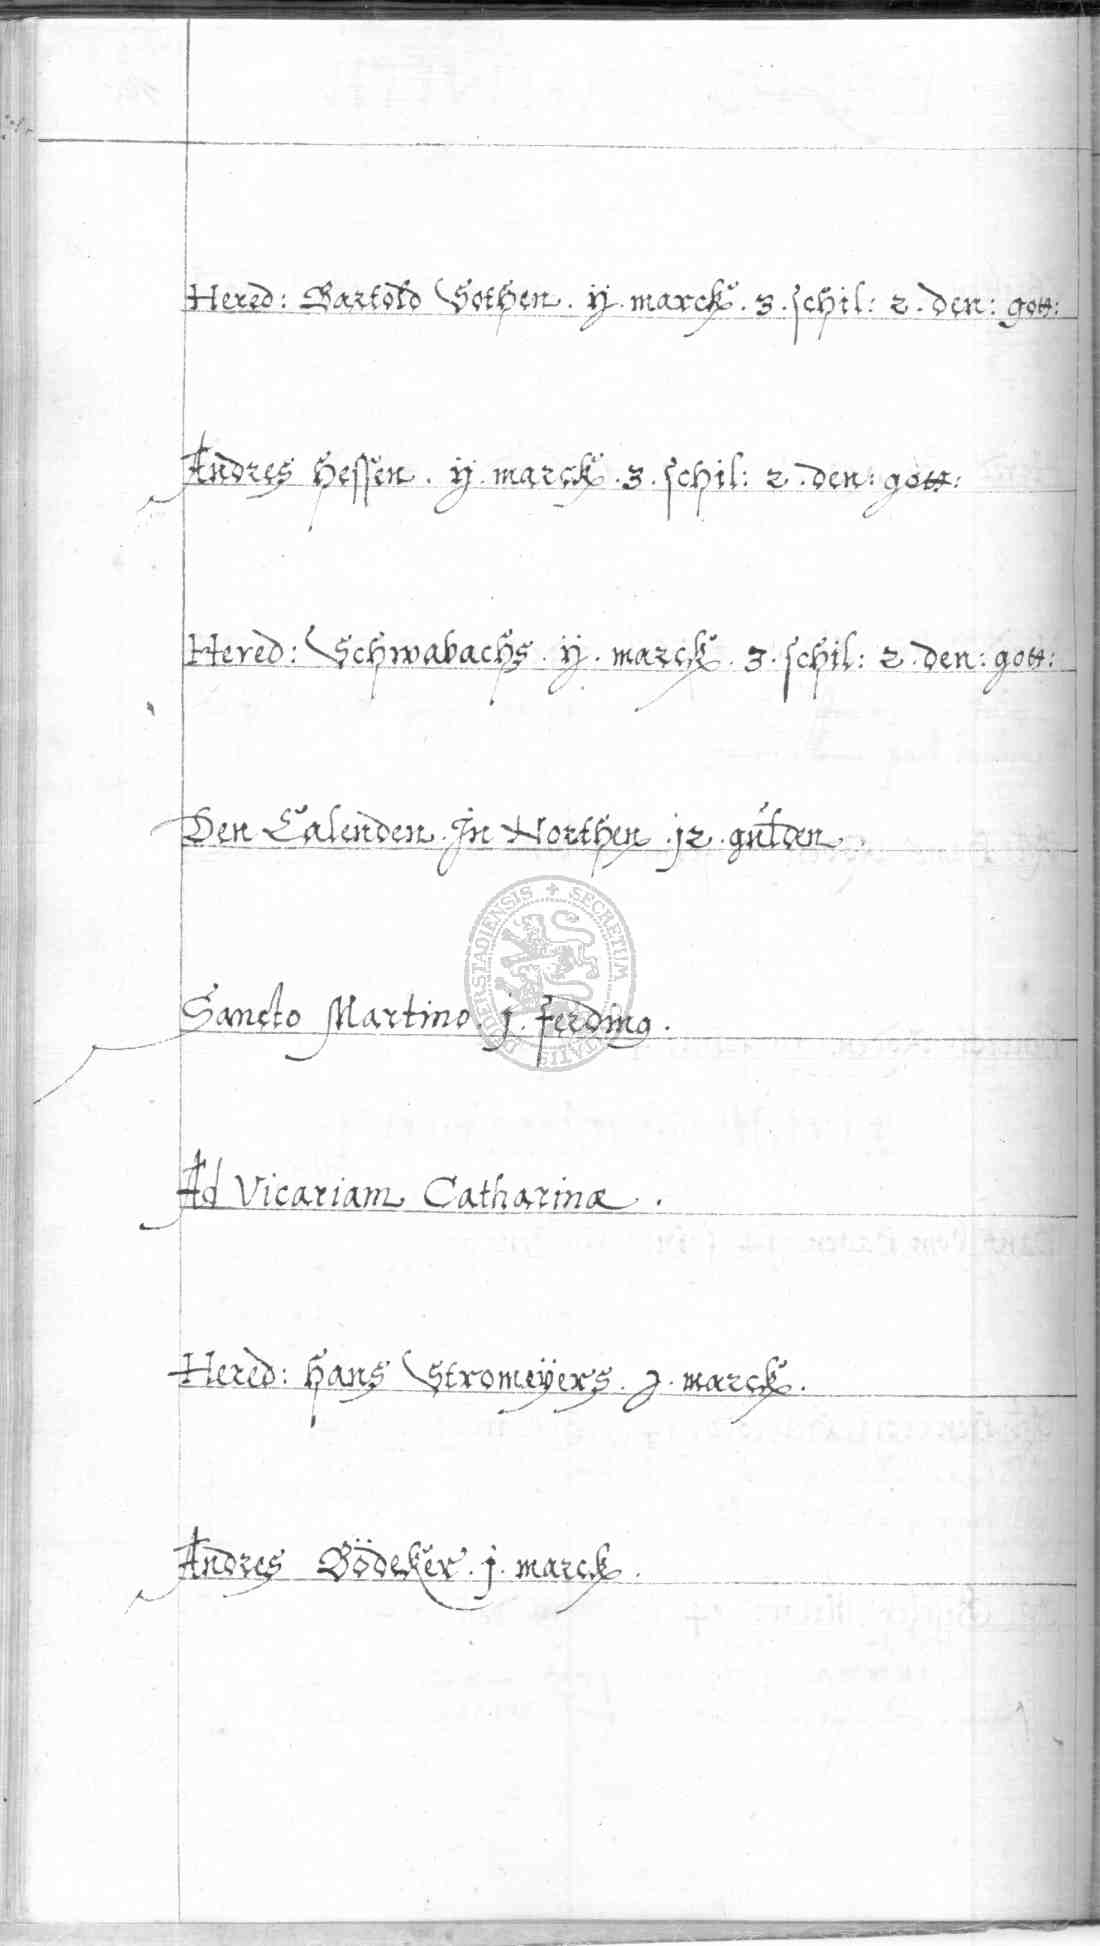 Hered: Bartold Sothen . ij . marck . 3 . schil: 2 . den: gott:
Andres Hessen . ij . marck . 3 . schil: 2 . den: gott:
Hered: Schwabachs . ij . marck . 3 . schil: 2 . den: gott:
Den Calenden . In Northen . j2 . gulden .
Sancto Martino . j . ferding .
Ad Vicariam Catharinæ .
Hered: Hans Stromeÿers . j . marck .
Andres Bödeker . j . marck .
SECRETUM DUDERSTADIENSIS